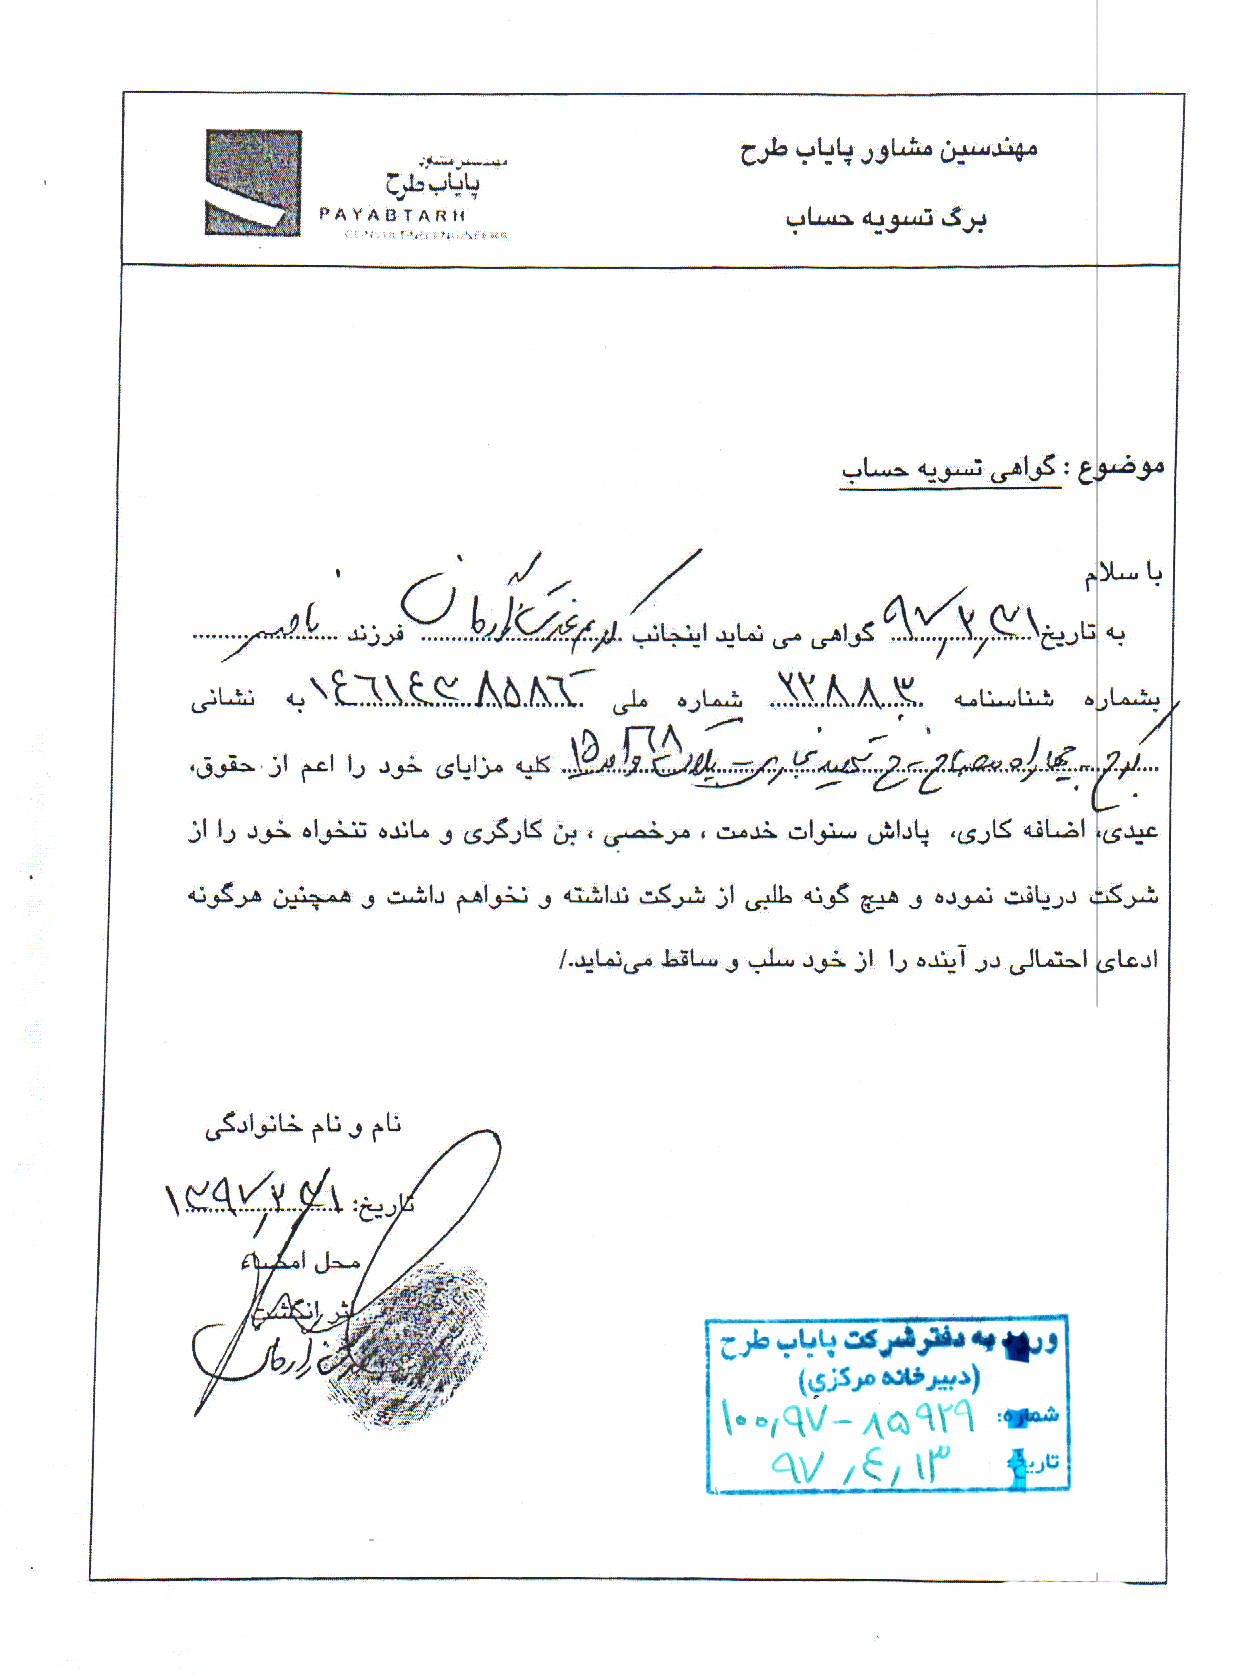 مهندسین مشاور پایاب طرح
برگ تسویه حساب
مهندسین مشاور
پایاب طرح
PAYABTARH
CONSULTING ENGINEERS
موضوع : گواهی تسویه حساب
با سلام
به تاریخ ۹۷,۳,۳۱ گواهی می نماید اینجانب فرزند ناصر
بشماره شناسنامه شماره ملی ۱۴۶۱۴۳۸۵۸۶ به نشانی
کرج - چهارراه مصباح - خ شهید - پلاک ۶۸ واحد ۱۵ کلیه مزایای خود را اعم از حقوق،
عیدی، اضافه کاری، پاداش سنوات خدمت ، مرخصی ، بن کارگری و مانده تنخواه خود را از
شرکت دریافت نموده و هیچ گونه طلبی از شرکت نداشته و نخواهم داشت و همچنین هرگونه
ادعای احتمالی در آینده را از خود سلب و ساقط می‌نماید./
نام و نام خانوادگی
تاریخ: ۱۳۹۷,۳,۳۱
محل امضاء
اثر انگشت
ورود به دفتر شرکت پایاب طرح
(دبیرخانه مرکزی)
شماره: ۱۰۰,۹۷-۸۵۹۲۹
تاریخ: ۹۷,۴,۱۳